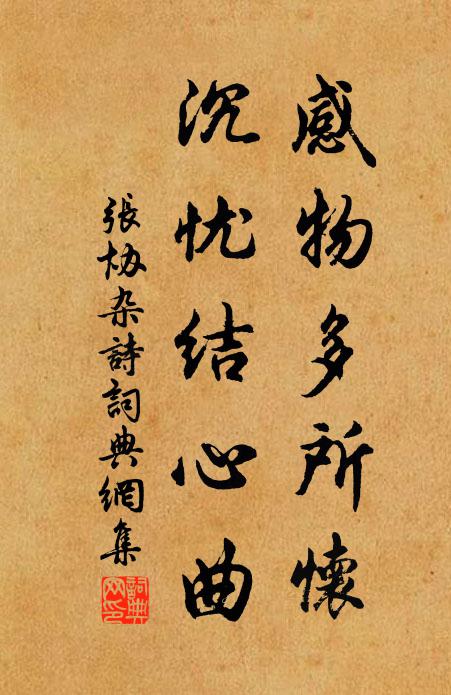 感物多所懷
沉忧结心曲
張协杂詩詞典網集
詞典网印